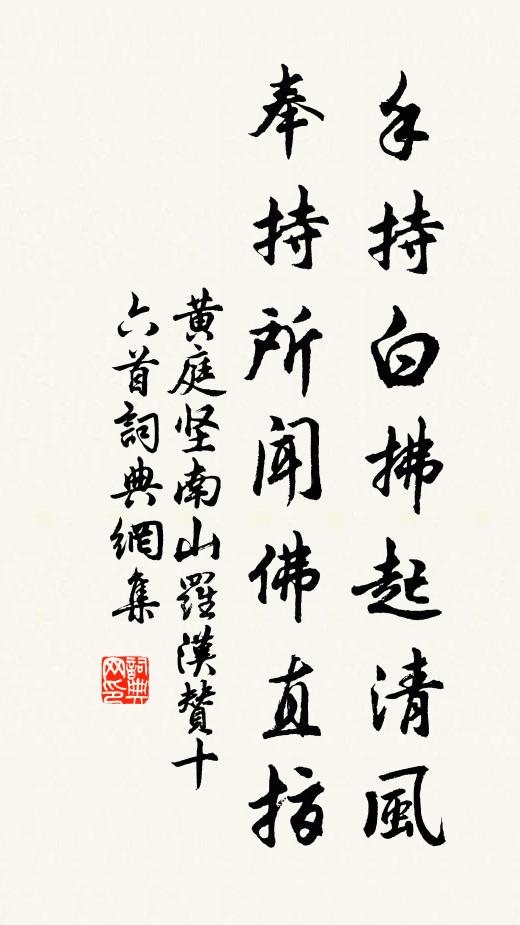 手持白拂起清風
奉持所聞佛直指
黄庭坚南山羅漢賛十
六首詞典網集
詞典
网印